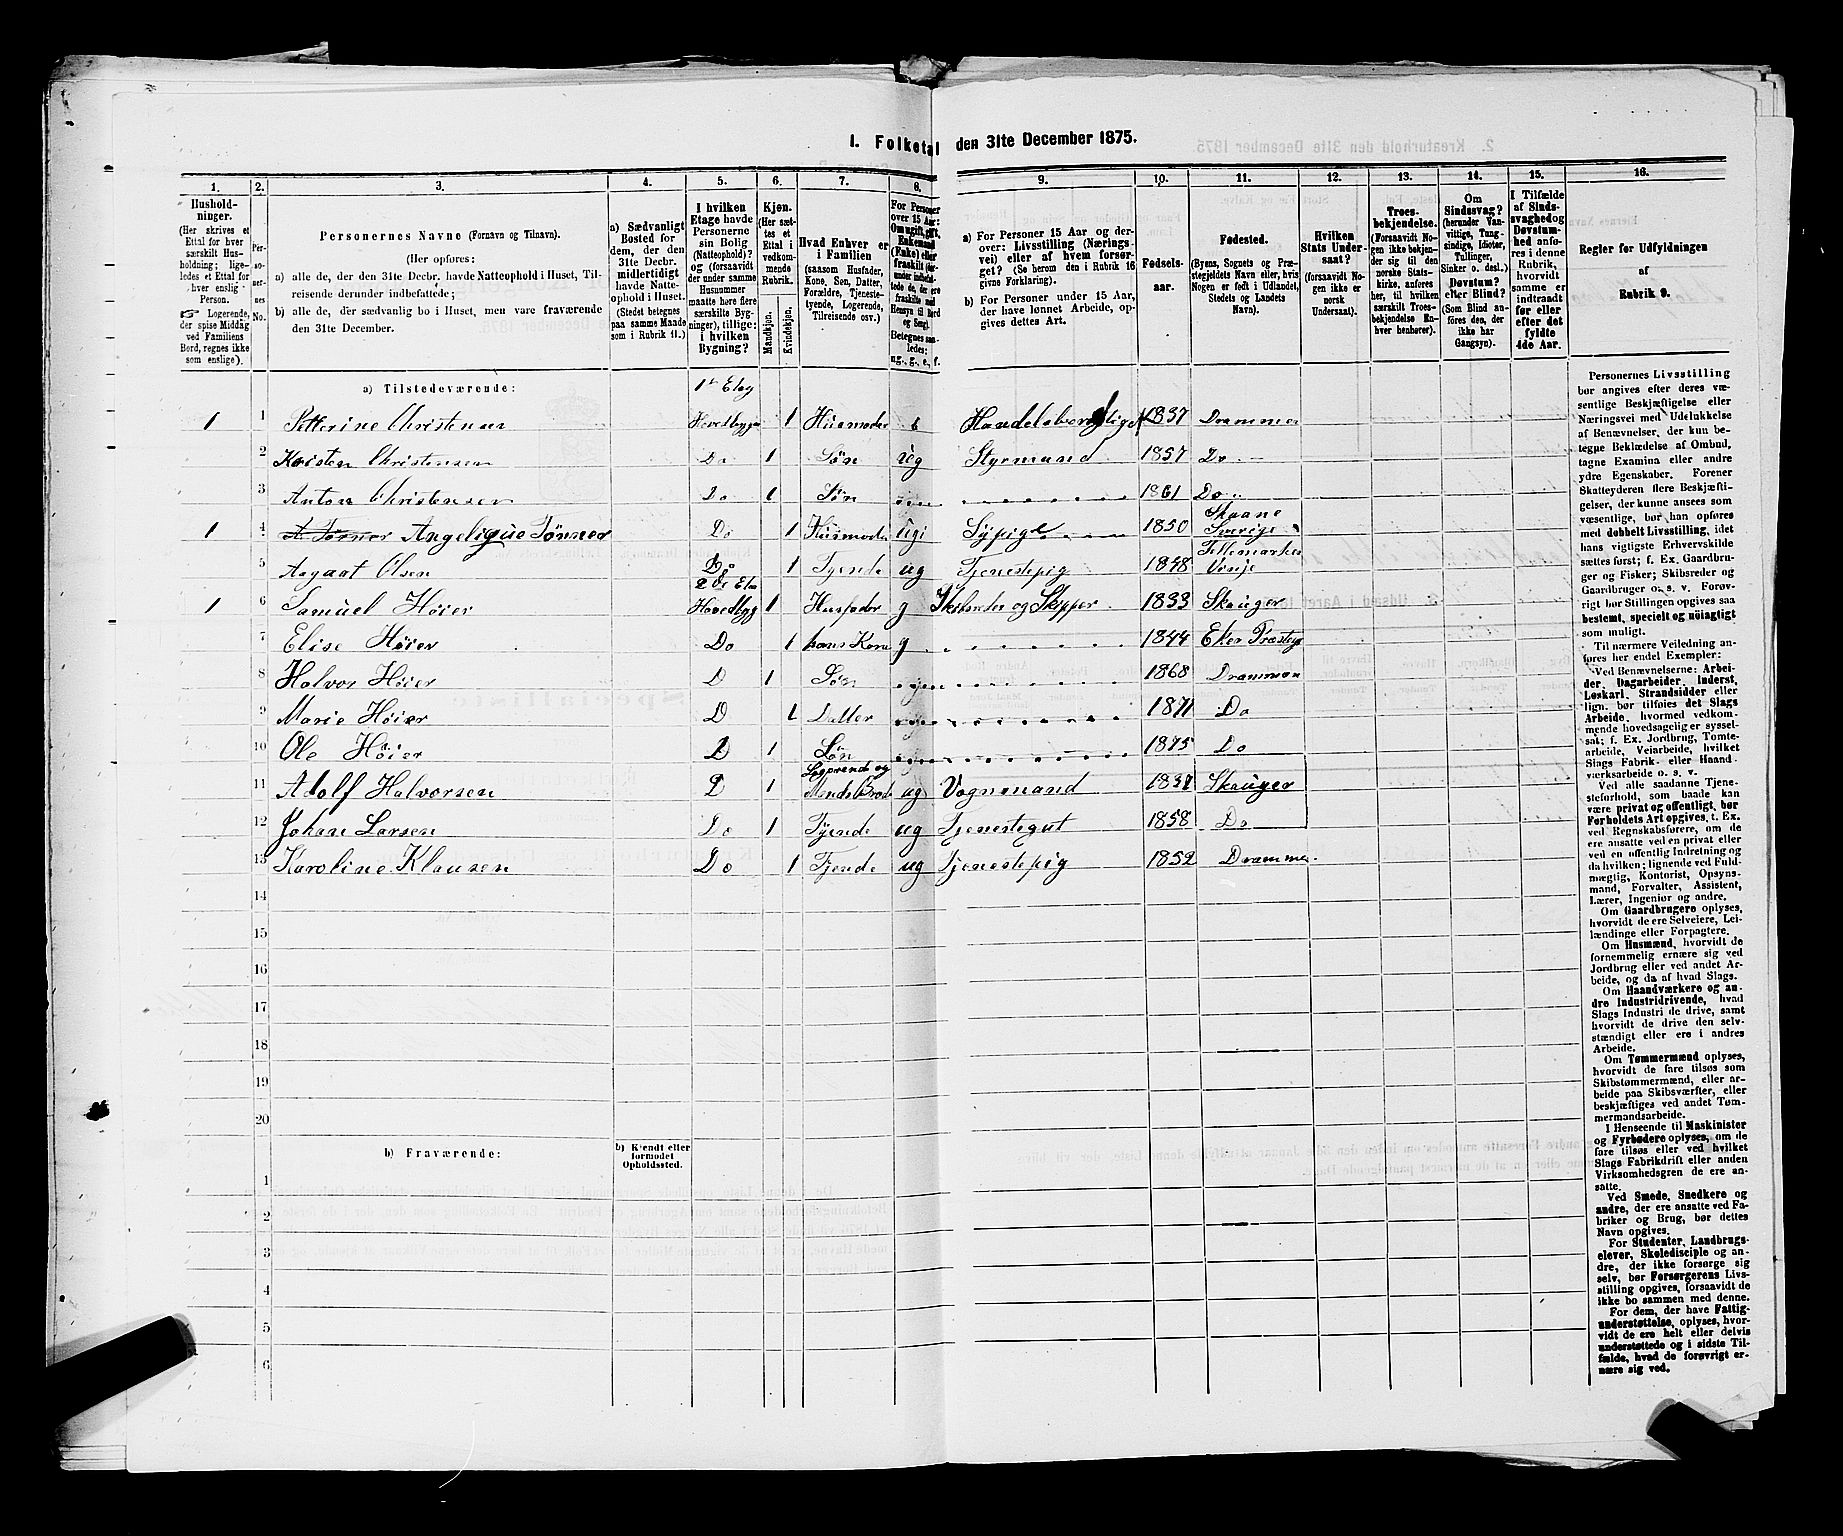 1. Folketal den 31te December 1875.
1. 2. 3. 4. 5. 6. 7. 8. 9. 10. 11. 12. 13. 14. 15. 16.
Hushold-
ninger.
(Her skrives et
Ettal for hver
særskilt Hus-
holdning; lige-
ledes et Ettal for
hver enslig
Person.
☞ Logerende,
der spise Middag
ved Familiens
Bord, regnes ikke
som enslige).
Per-
so-
ner-
nes
No.
Personernes Navne (Fornavn og Tilnavn).
(Her opføres:
a) alle de, der den 31te Decbr. havde Natteophold i Huset, Til-
reisende derunder indbefattede;
b) alle de, der sædvanlig bo i Huset, men vare fraværende
den 31te December.
a) Sædvanligt
Bosted for
dem, der den
31te Decbr.
midlertidigt
havde Natte-
ophold i Huset.
(Stedet betegnes
paa samme Maade
som i Rubrik 11.)
I hvilken
Etage havde
Personerne
sin Bolig
(Natteophold)?
og (forsaavidt
der under samme
Husnummer
maatte høre flere
særskilte Byg-
ninger), tillige:
i hvilken
Bygning?
Kjøn.
(Her sæt-
tes et
Ettal i
vedkom-
mende
Rubrik.
Mandkjøn.
Kvindekjøn.
Hvad Enhver er
i Familien
(saasom Husfader,
Kone, Søn, Datter,
Forældre, Tjeneste-
tyende, Logerende,
Tilreisende osv.)
For Personer
over 15 Aar:
Om ugift, gift,
Enkemand
(Enke) eller
fraskilt
Betegnes saa-
ledes:
ug., g., e., f.
a) For Personer 15 Aar og der-
over: Livsstilling (Nærings-
vei) eller af hvem forsør-
get? (Se herom den i Rubrik 16
givne Forklaring).
b) For Personer under 15 Aar,
der have lønnet Arbeide, op-
gives dettes Art.
Fødsels-
aar.
Fødested.
(Byens, Sognets og Præ-
stegjeldets Navn eller, hvis
Nogen er født i Udlandet,
Stedets og Landets
Navn).
Hvilken
Stats Under-
saat?
(forsaavidt No-
gen ikke er
norsk
Undersaat).
Troes-
bekjendelse.
(Forsaavidt No-
gen ikke bekjen-
der sig til den
norske Stats-
kirke, anføres
her, til hvilken
særskilt Troes-
bekjendelse En-
hver henhører).
Om
Sindssvag?
(herunder Van-
vittige, Tung-
sindige, Idioter,
Tullinger,
Sinker o. desl.)
Døvstum?
eller Blind?
(Som Blind an-
føres den, der
ikke har
Gangsyn).
I Tilfælde
af Sinds-
svaghed og
Døvstum-
hed anfø-
res i denne
Rubrik,
hvorvidt
samme er
indtraadt
før eller
efter det
fyldte
4de Aar.
Regler for Udfyldningen
af
Rubrik 9.
a) Tilstedeværende: 1ste Etag
1 1 Petterine Christensen Hovedbygn 1 Husmoder e 1837 Drammen
2 Kristen Christensen Do 1 Søn ug Styrmand 1857 Do
3 Anton Christensen Do 1 Søn 1861 Do
1 4 Angelique Tønner Do 1 Husmoder ugi Sypige 1850 Skaane Sverige
5 Aagaat Olsen Do 1 Tjende ug Tjenestepig 1848 Tellemarken Vinje
2de Eta
1 6 Samuel Høier Hovedbygg 1 Husfader g Skibsreder og Skipper 1833 Skauger
7 Elise Høier Do 1 hans Kone g 1844 Eker Præsteg
8 Halvor Høier D 1 Søn 1868 Drammen
9 Marie Høier D 1 Datter 1871 Do
10 Ole Høier D 1 Søn 1875 Do
11 Adolf Halvorsen D 1 Logerende og Mands Brod ug Vognmand 1837 Skauger
12 Johan Larsen Do 1 Tjende ug Tjenestegut 1858 Do
13 Karoline Klausen Do 1 Tjende ug Tjenestepig 1852 Drammen
14
15
16
17
18
19
20
b) Fraværende: b) Kjendt eller
formodet
Opholdssted.
1
2
3
4
5
6
Personernes Livsstilling
bør angives efter deres væ-
sentlige Beskjæftigelse eller
Næringsvei med Udelukkelse
af Benævnelser, der kun be-
tegne Beklædelse af Ombud,
tagne Examina eller andre
ydre Egenskaber. Forener
Skatteyderen flere Beskjæfti-
gelser, der kunne ansees som
væsentlige, bør han opføres
med dobbelt Livsstilling, idet
hans vigtigste Erhvervskilde
sættes først; f. Ex. Gaardbru-
ger og Fisker; Skibsreder og
Gaardbruger o. s. v. Forøv-
rigt bør Stillingen opgives saa
bestemt, specielt og nøiagtigt
som muligt.
Til nærmere Veiledning an-
føres her endel Exempler:
Ved Benævnelserne: Arbei-
der, Dagarbeider, Inderst,
Løskarl, Strandsidder eller
lign. bør tilføies det Slags
Arbeide, hvormed vedkom-
mende hovedsagelig er syssel-
sat; f. Ex. Jordbrug, Tomte-
arbeide, Veiarbeide, hvilket
Slags Fabrik- eller Haand-
værksarbeide o. s. v.
Ved alle saadanne Tjene-
steforhold, som baade kan
være privat og offentligt, bør
Forholdets Art opgives, t. Ex.
ved Regnskabsførere, om de
ere ansatte ved en privat eller
ved en offentlig Indretning og
da hvilken; lignende ved Fuld-
mægtig, Kontorist, Opsyns-
mand, Forvalter, Assistent,
Lærer, Ingeniør og andre.
Om Gaardbrugere oplyses,
hvorvidt de ere Selveiere, Lei-
lændinge eller Forpagtere.
Om Husmænd, hvorvidt de
fornemmelig ernære sig ved
Jordbrug eller ved andet Ar-
beide, og da af hvad Slags.
Om Haandværkere og an-
dre Industridrivende, hvad
Slags Industri de drive, samt
hvorvidt de drive den selv-
stændigt eller ere i andres
Arbeide.
Om Tømmermænd oplyses,
hvorvidt de fare tilsøs som
Skibstømmermænd, eller ar-
beide paa Skibsværfter, eller
beskjæftiges ved andet Tøm-
mermandsarbeide.
I Henseende til Maskinister
og Fyrbødere oplyses, om de
fare tilsøs eller ved hvilket
Slags Fabrikdrift eller anden
Virksomhedsgren de ere an-
satte.
Ved Smede, Snedkere og
andre, der ere ansatte ved Fa-
briker og Brug, bør dettes
Navn opgives.
For Studenter, Landbrugs-
elever, Skoledisciple og an-
dre, der ikke forsørge sig
selv, bør Forsørgerens Livs-
stilling opgives, forsaavidt de
ikke bo sammen med denne.
For dem, der have Fattig-
understøttelse, oplyses, hvor-
vidt de ere helt eller delvis
understøttede og i sidste Til-
fælde, hvad de forøvrigt er-
nære sig ved.